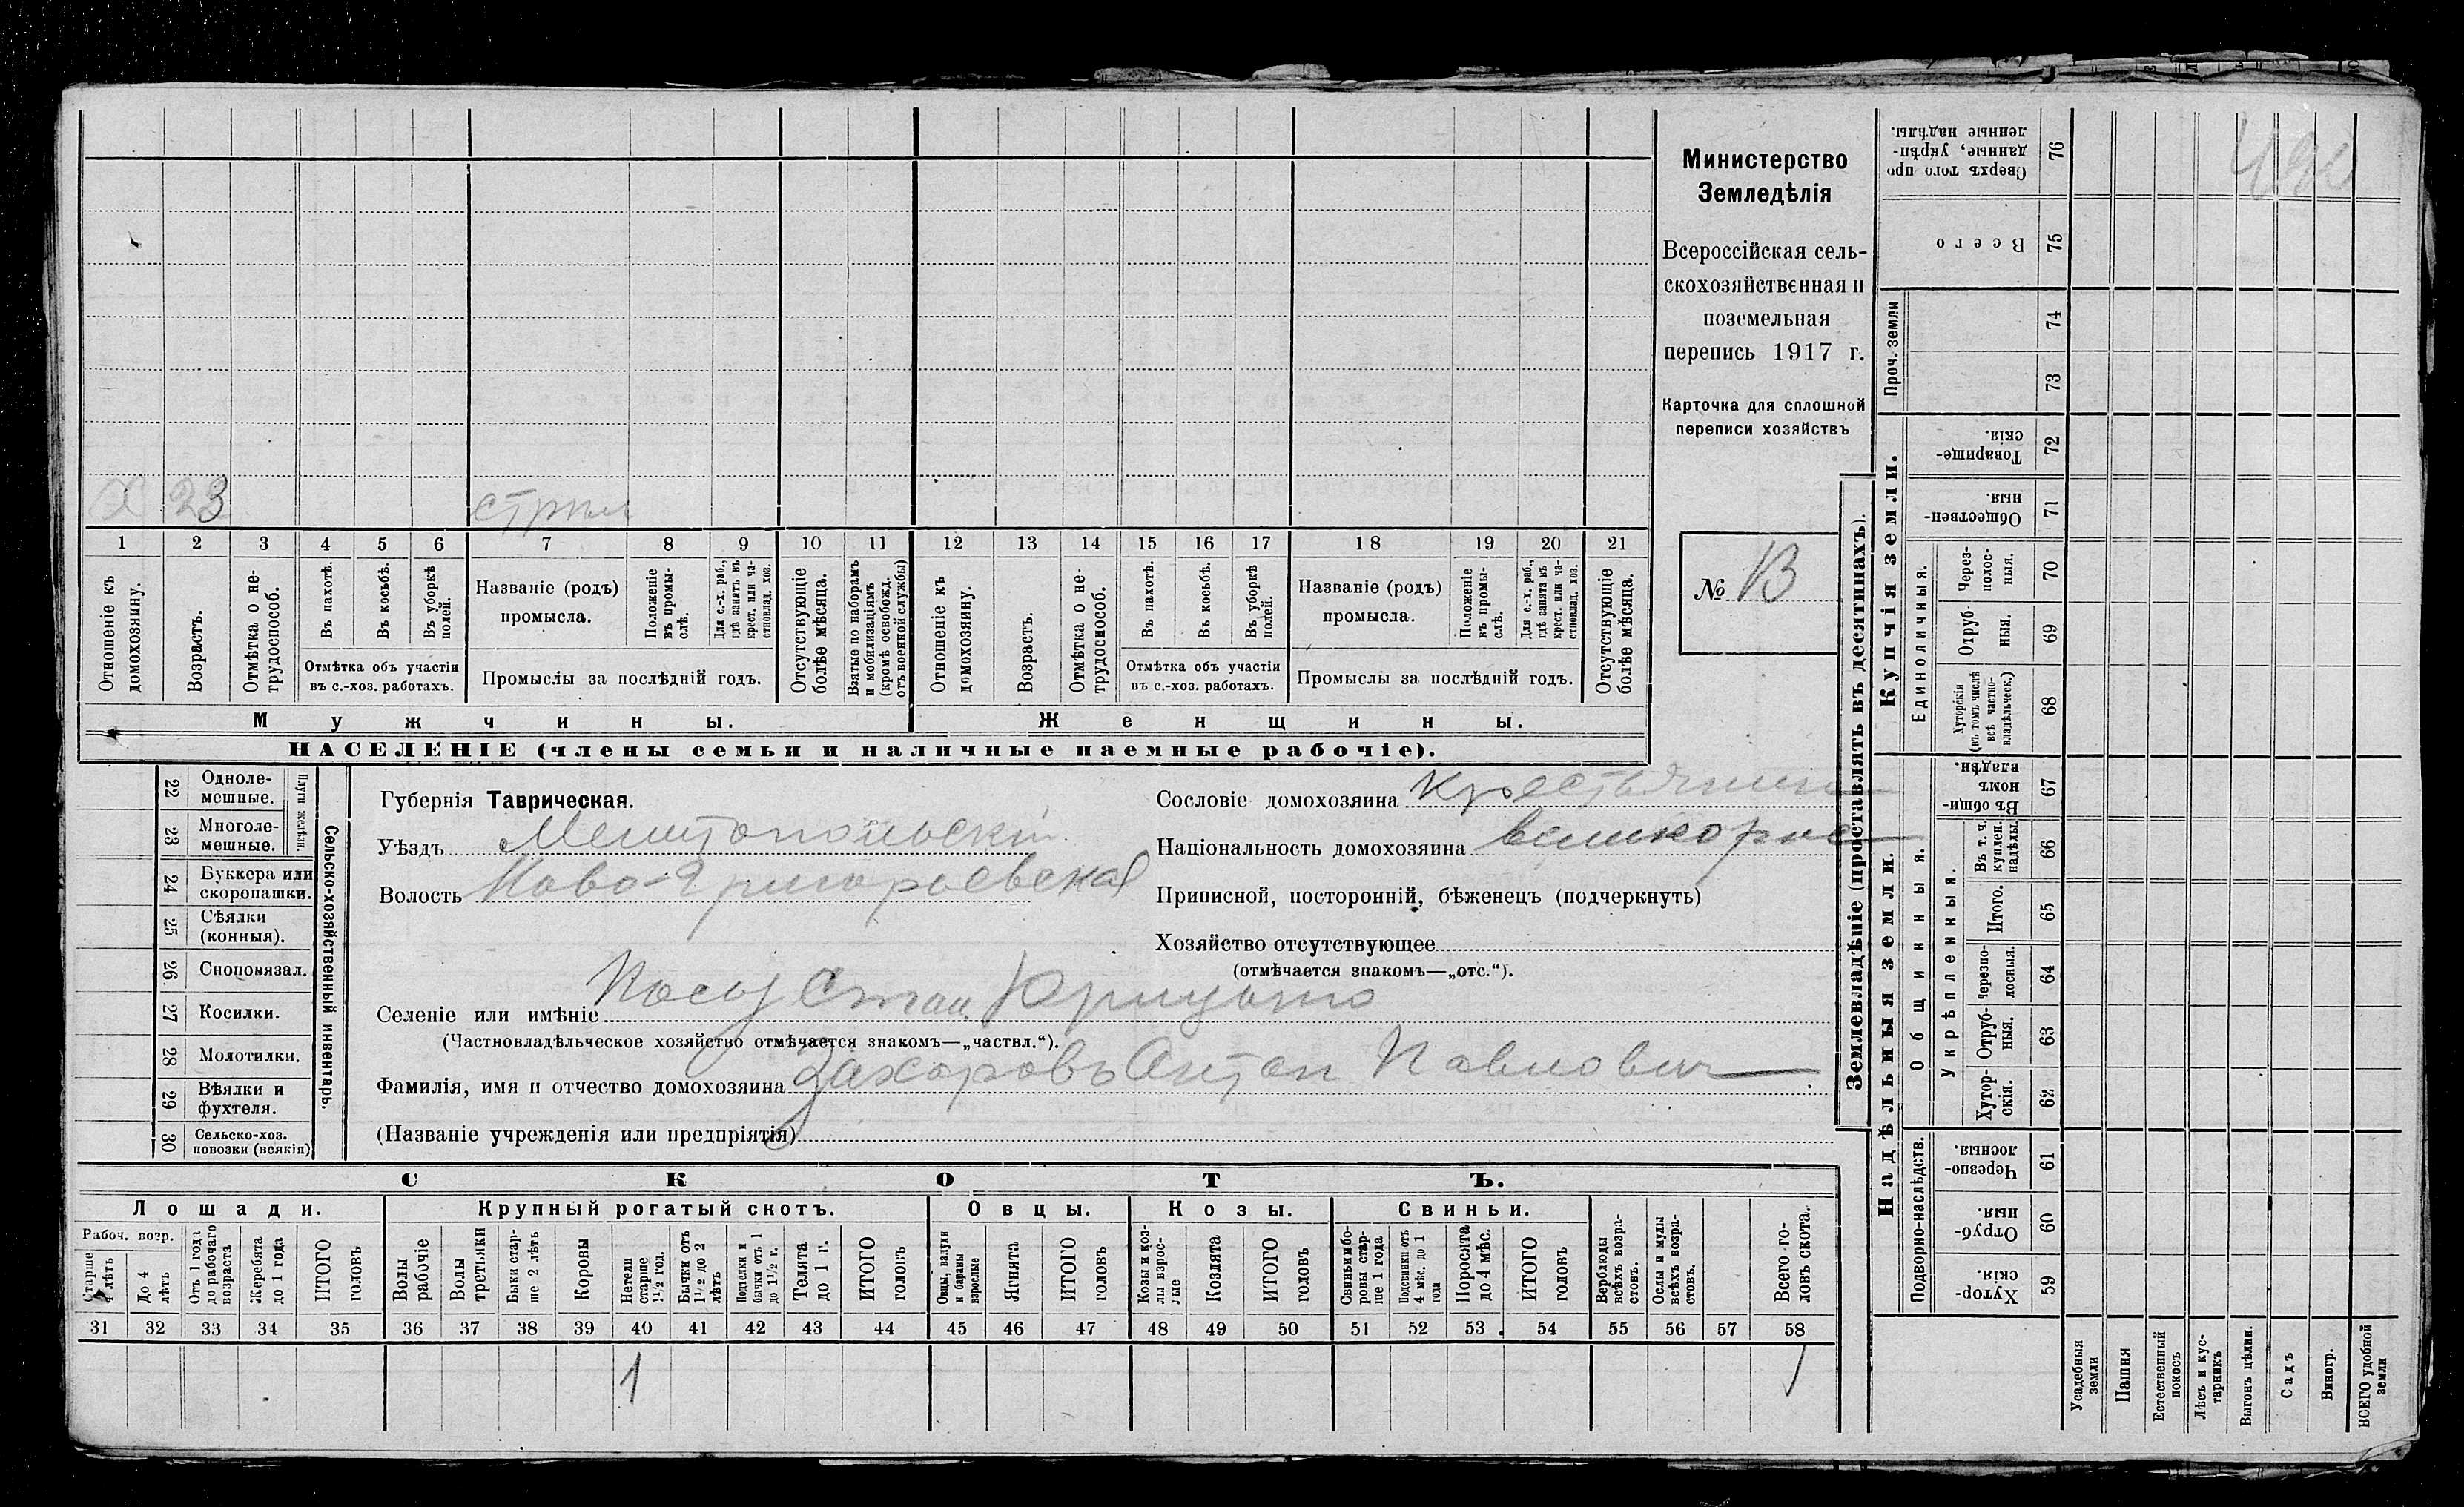 Министерство
Земледѣлія
Всероссійская сель-
скохозяйственная и
поземельная
перепись 1917 г.
Карточка для сплошной
переписи хозяйствъ
№ 13
Х 23 стрѣл
1 2 3 4 5 6 7 8 9 10 11 12 13 14 15 16 17 18 19 20 21
Отношеніе къ домохозяину.
Возрастъ.
Отмѣтка о не-трудоспособ.
Въ пахотѣ.
Въ косьбѣ.
Въ уборкѣ полей.
Отмѣтка объ участіи
въ с.-хоз. работахъ.
Названіе (родъ)
промысла.
Положеніе въ промы-слѣ.
Для с.-х. раб., гдѣ занятъ въ крест. или ча-стновлад. хоз.
Промыслы за послѣдній годъ.
Отсутствующіе болѣе мѣсяца.
Взятые по наборамъ и мобилизаціямъ (кромѣ освобожд. отъ военной службы)
Отношеніе къ домохозяину.
Возрастъ.
Отмѣтка о не-трудоспособ.
Въ пахотѣ.
Въ косьбѣ.
Въ уборкѣ полей.
Отмѣтка объ участіи
въ с.-хоз. работахъ.
Названіе (родъ)
промысла.
Положеніе въ промы-слѣ.
Для с.-х. раб., гдѣ занята въ крест. или ча-стновлад. хоз.
Промыслы за послѣдній годъ.
Отсутствующіе болѣе мѣсяца.
Мужчины. Женщины.
НАСЕЛЕНІЕ (члены семьи и наличные наемные рабочіе).
Сельско-хозяйственный инвентарь.
Плуги желѣзн.
22 Одноле-мешные.
23 Многоле-мешные.
24 Буккера или скоропашки.
25 Сѣялки (конныя).
26 Сноповязал.
27 Косилки.
28 Молотилки.
29 Вѣялки и фухтеля.
30 Сельско-хоз. повозки (всякія)
Губернія Таврическая.
Уѣздъ Мелитопольскій
Волость Ново-Григорьевская
Сословіе домохозяина крестьянин
Національность домохозяина великорос
Приписной, посторонній, бѣженецъ (подчеркнуть)
Хозяйство отсутствующее
(отмѣчается знакомъ—„отс.“).
Селеніе или имѣніе
(Частновладѣльческое хозяйство отмѣчается знакомъ—„частвл.“).
Фамилія, имя и отчество домохозяина Захаровъ Антон Павлович
(Названіе учрежденія или предпріятія)
СКОТЪ.
Лошади. Крупный рогатый скотъ. Овцы. Козы. Свиньи.
Рабоч. возр.
Старше 4 лѣтъ
До 4 лѣтъ
Отъ 1 года до рабочаго возраста
Жеребята до 1 года
ИТОГО головъ
Волы рабочіе
Волы третьяки
Быки стар-ше 2 лѣтъ
Коровы
Нетели старше 1½ год.
Бычки отъ 1½ до 2 лѣтъ
Подтелки и бычки отъ 1 до 1½ г.
Телята до 1 г.
ИТОГО головъ
Овцы, валухи и бараны взрослые
Ягнята
ИТОГО головъ
Козы и коз-лы взрос-лые
Козлята
ИТОГО головъ
Свиньи и бо-ровы стар-ше 1 года
Подсвинки отъ 4 мѣс. до 1 года
Поросята до 4 мѣс.
ИТОГО головъ
Верблюды всѣхъ возра-стовъ.
Ослы и мулы всѣхъ возра-стовъ.
Всего го-ловъ скота.
31 32 33 34 35 36 37 38 39 40 41 42 43 44 45 46 47 48 49 50 51 52 53 54 55 56 57 58
1 1
Землевладѣніе (проставлять въ десятинахъ).
Надѣльныя земли.
Купчія земли.
Проч. земли
Подворно-наслѣдств.
Общинныя.
Укрѣпленныя.
Единоличныя.
76 Сверхъ того про данные, укрѣп-ленные надѣлы.
75 Всего
74
73
72 Товарище-скія.
71 Обществен-ныя.
70 Через-полос-ныя.
69 Отруб-ныя.
68 Хуторскія (въ томъ числѣ всѣ частно-владѣльческ.)
67 Въ общин-номъ владѣн.
66 Въ т. ч. куплен. надѣлы.
65 Итого.
64 Черезпо-лосныя.
63 Отруб-ныя.
62 Хутор-скія.
61 Черезпо-лосныя.
60 Отруб-ныя.
59 Хутор-скія.
Усадебныя земли
Пашня
Естественный покосъ
Лѣсъ и кус-тарникъ
Выгонъ цѣлин.
Садъ
Виногр.
ВСЕГО удобной земли